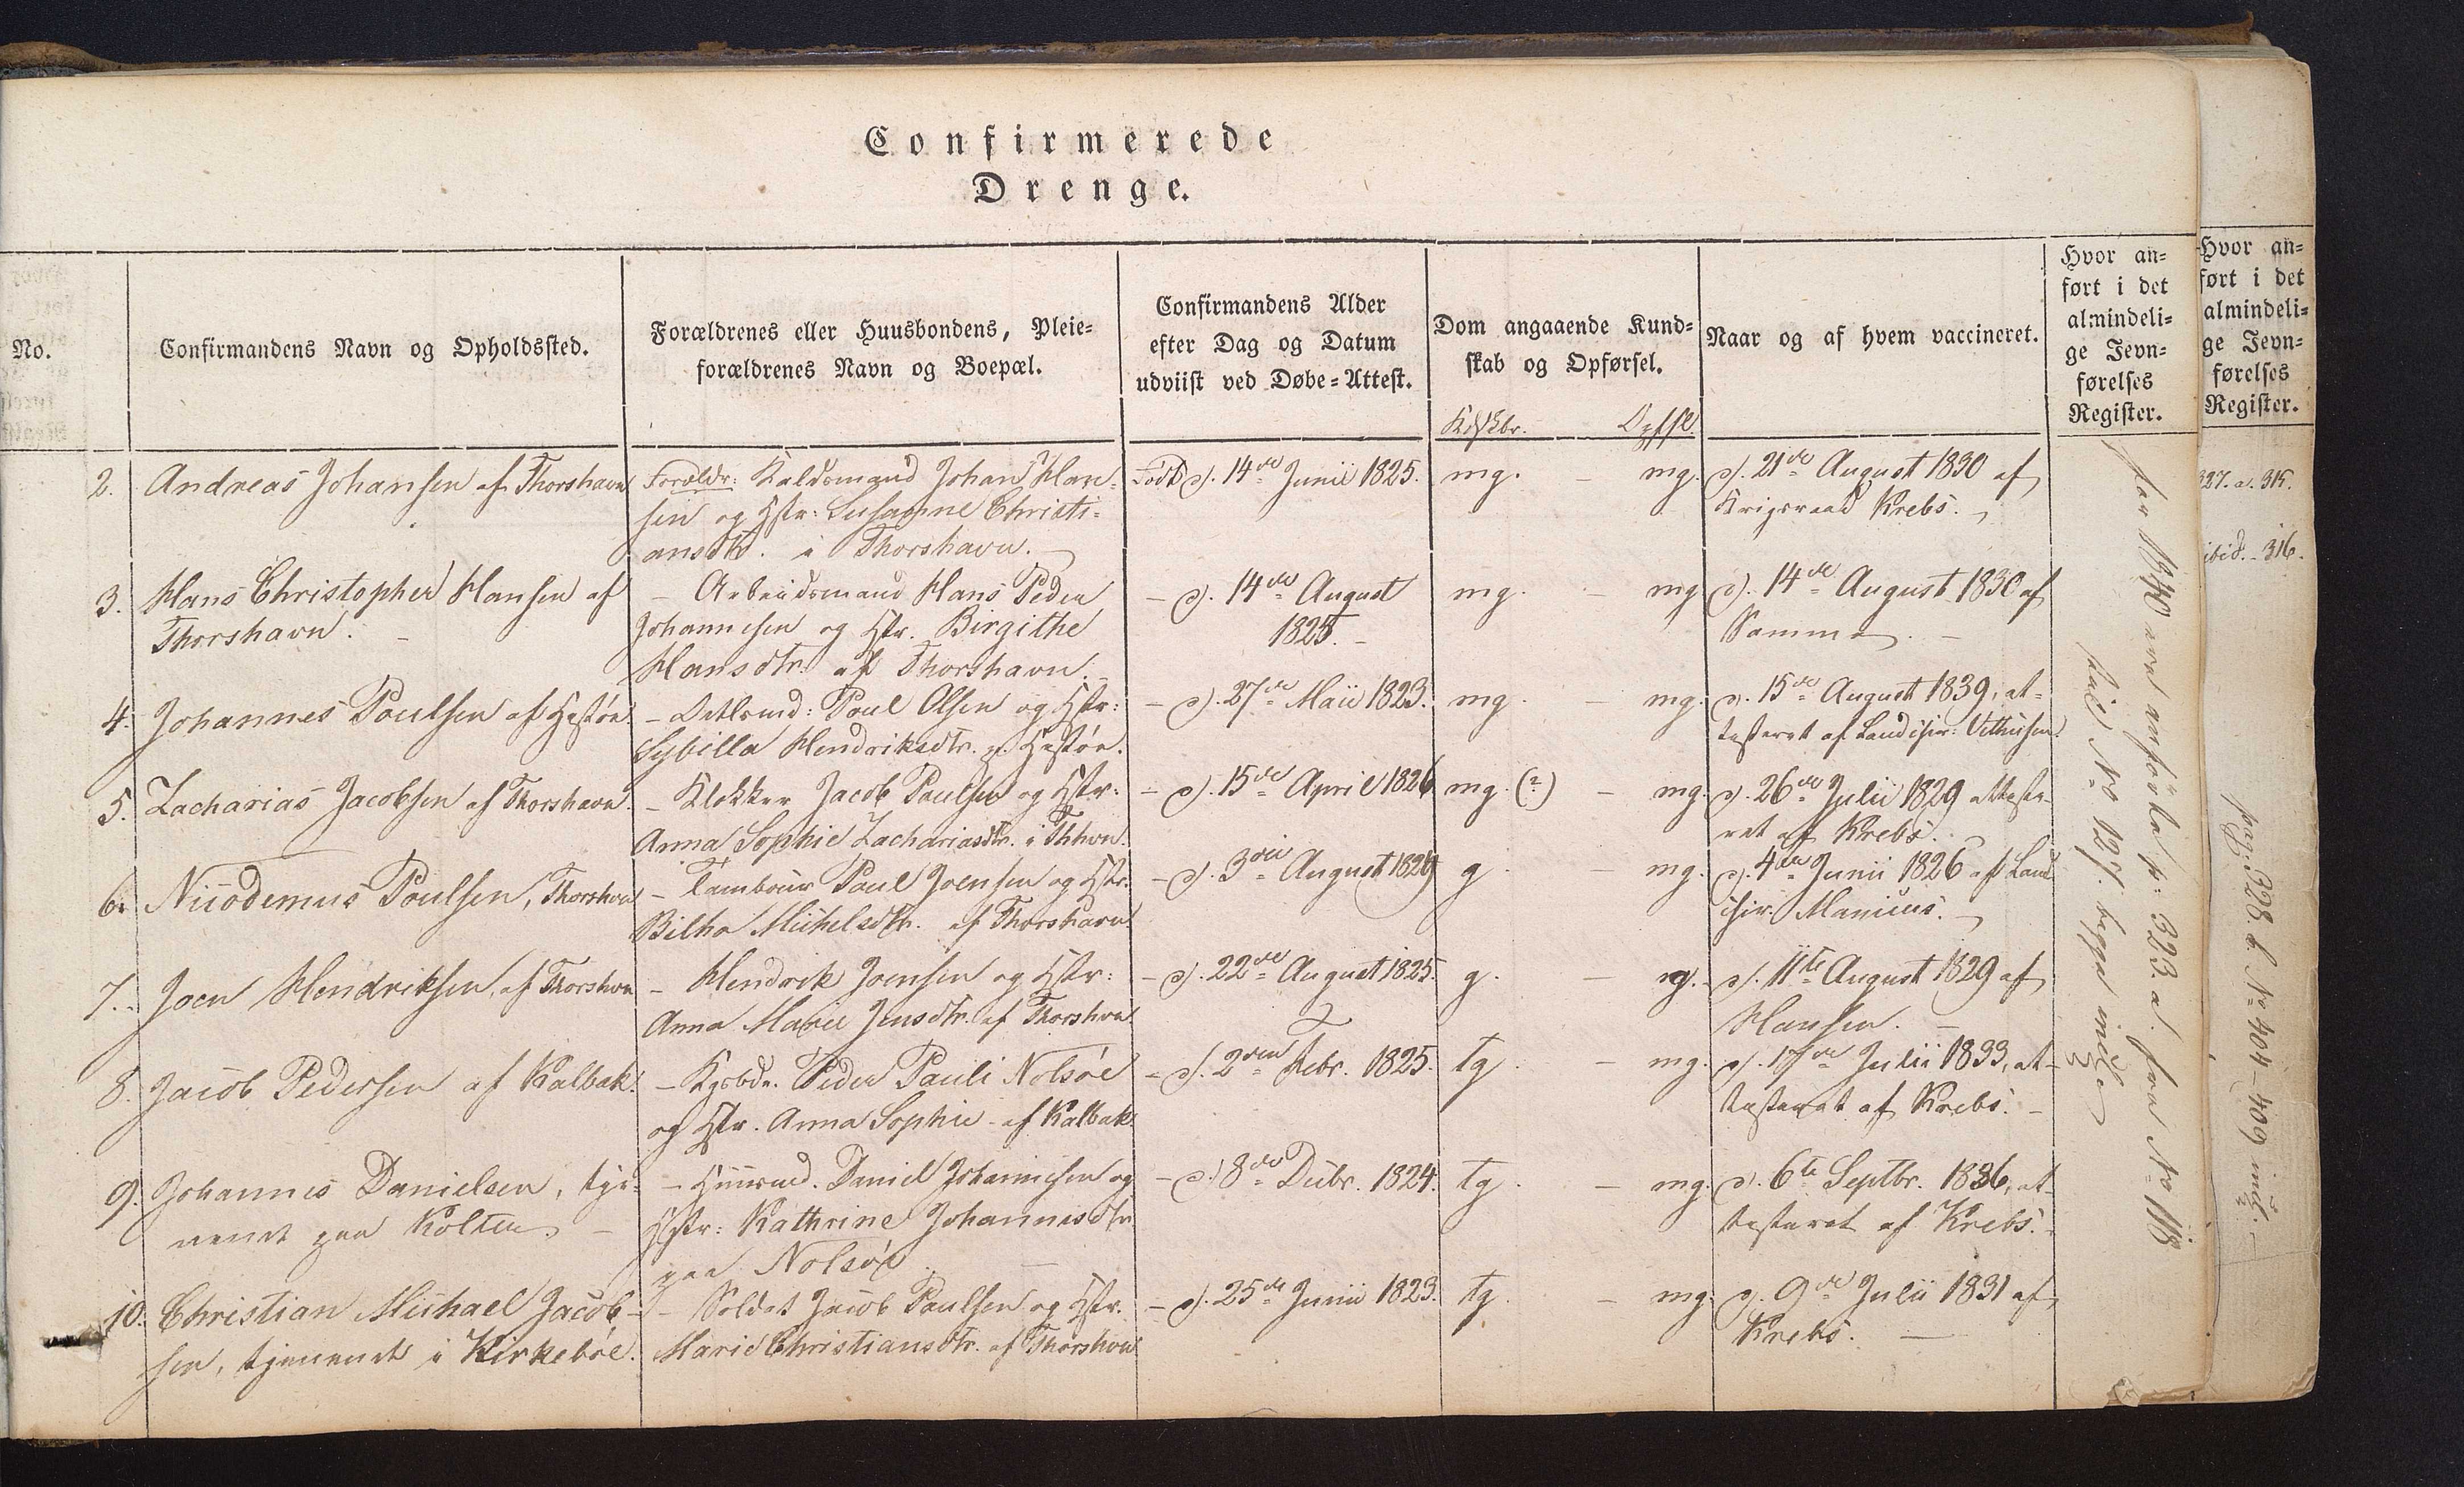 Confirmerede
Drenge.
No.
Confirmandens Navn og Opholdssted.
Forældrenes eller Huusbondens, Pleie=
forældrenes Navn og Boepæl.
Confirmandens Alder
efter Dag og Datum
udviist ved Døbe=Attest.
Dom angaaende Kund=
skab og Opførsel.
Kdskbr. Opfsl.
Naar og af hvem vaccineret.
Hvor an=
ført i det
almindeli=
ge Jevn=
førelses
Register.
Hvor an=
ført i det
almindeli=
ge Jevn=
førelses
Register.
2. Andreas Johansen af Thorshavn
Forældr: Kaldsmand Johan Han-
sen og Hstr: Susanne Christi-
ansdtr. i Thorshavn.
Født d. 14de Junii 1825.
mg. - mg.
d. 21de August 1830 af
Krigsraad Krebs.
3. Hans Christopher Hansen af
Thorshavn.
- Arbeidsmand Hans Peder
Johannesen og Hstr. Birgithe
Hansdtr. af Thorshavn.
- d. 14de August
1825.
mg. - mg
d. 14de August 1830 af
Samme.
4. Johannes Poulsen af Hestøe.
- Poul Olsen og Hstr:
Sybilla Hendriksdtr. p. Hestøe.
- d. 27de Maii 1823.
mg. - mg.
d. 15de August 1839, at-
testeret af Landchir:
5. Zacharias Jacobsen af Thorshavn.
- Klokker Jacob Paulsen og Hstr:
Anna Sophie Zachariasdtr. i Thhvn.
- d. 15de April 1826
mg. (?) - mg.
d. 26de Julii 1829 atteste-
ret af Krebs.
6. Nicodemus Poulsen, Thorshvn
- Tambour Poul Joensen og Hstr:
Bilha Michelsdtr. af Thorshavn
- d. 3die August 1824
g. - mg.
d. 4de Junii 1826 af Land-
chir. Manicus.
7. Joen Hendriksen, af Thorshvn
- Hendrik Joensen og Hstr:
Anna Marie Jensdtr. af Thorshvn.
- d. 22de August 1825.
g. - g.
d. 11te August 1829 af
Hansen.
8. Jacob Pedersen af Kalbak.
- Kgsbdr. Peder Pauli Nolsøe
og Hstr. Anna Sophie - af Kalbak.
- d. 2den Febr. 1825.
tg. - mg.
d. 17de Julii 1833, at-
testeret af Krebs.
9. Johannes Danielsen, tje-
nende paa Kolter.
- Huusmd. Daniel Johannesen og
Hstr: Kathrine Johannisdtr
paa Nolsøe
- d. 8de Decbr. 1824.
tg. - mg.
d. 6te Septbr. 1836, at-
testeret af Krebs.
10. Christian Michael Jacob-
sen, tjenende i Kirkebøe.
- Soldat Jacob Paulsen og Hstr.
Marie Christiansdtr. af Thorshvn
- d. 25de Junii 1823.
tg. - mg.
d. 9de Julii 1831 af
Krebs.
for 1840 ere anførte p: 323. a. fra No 118
til No 127. begge incl.
327. a. 315.
ibid. - 316.
pag: 328. b. No 404-409 incl.